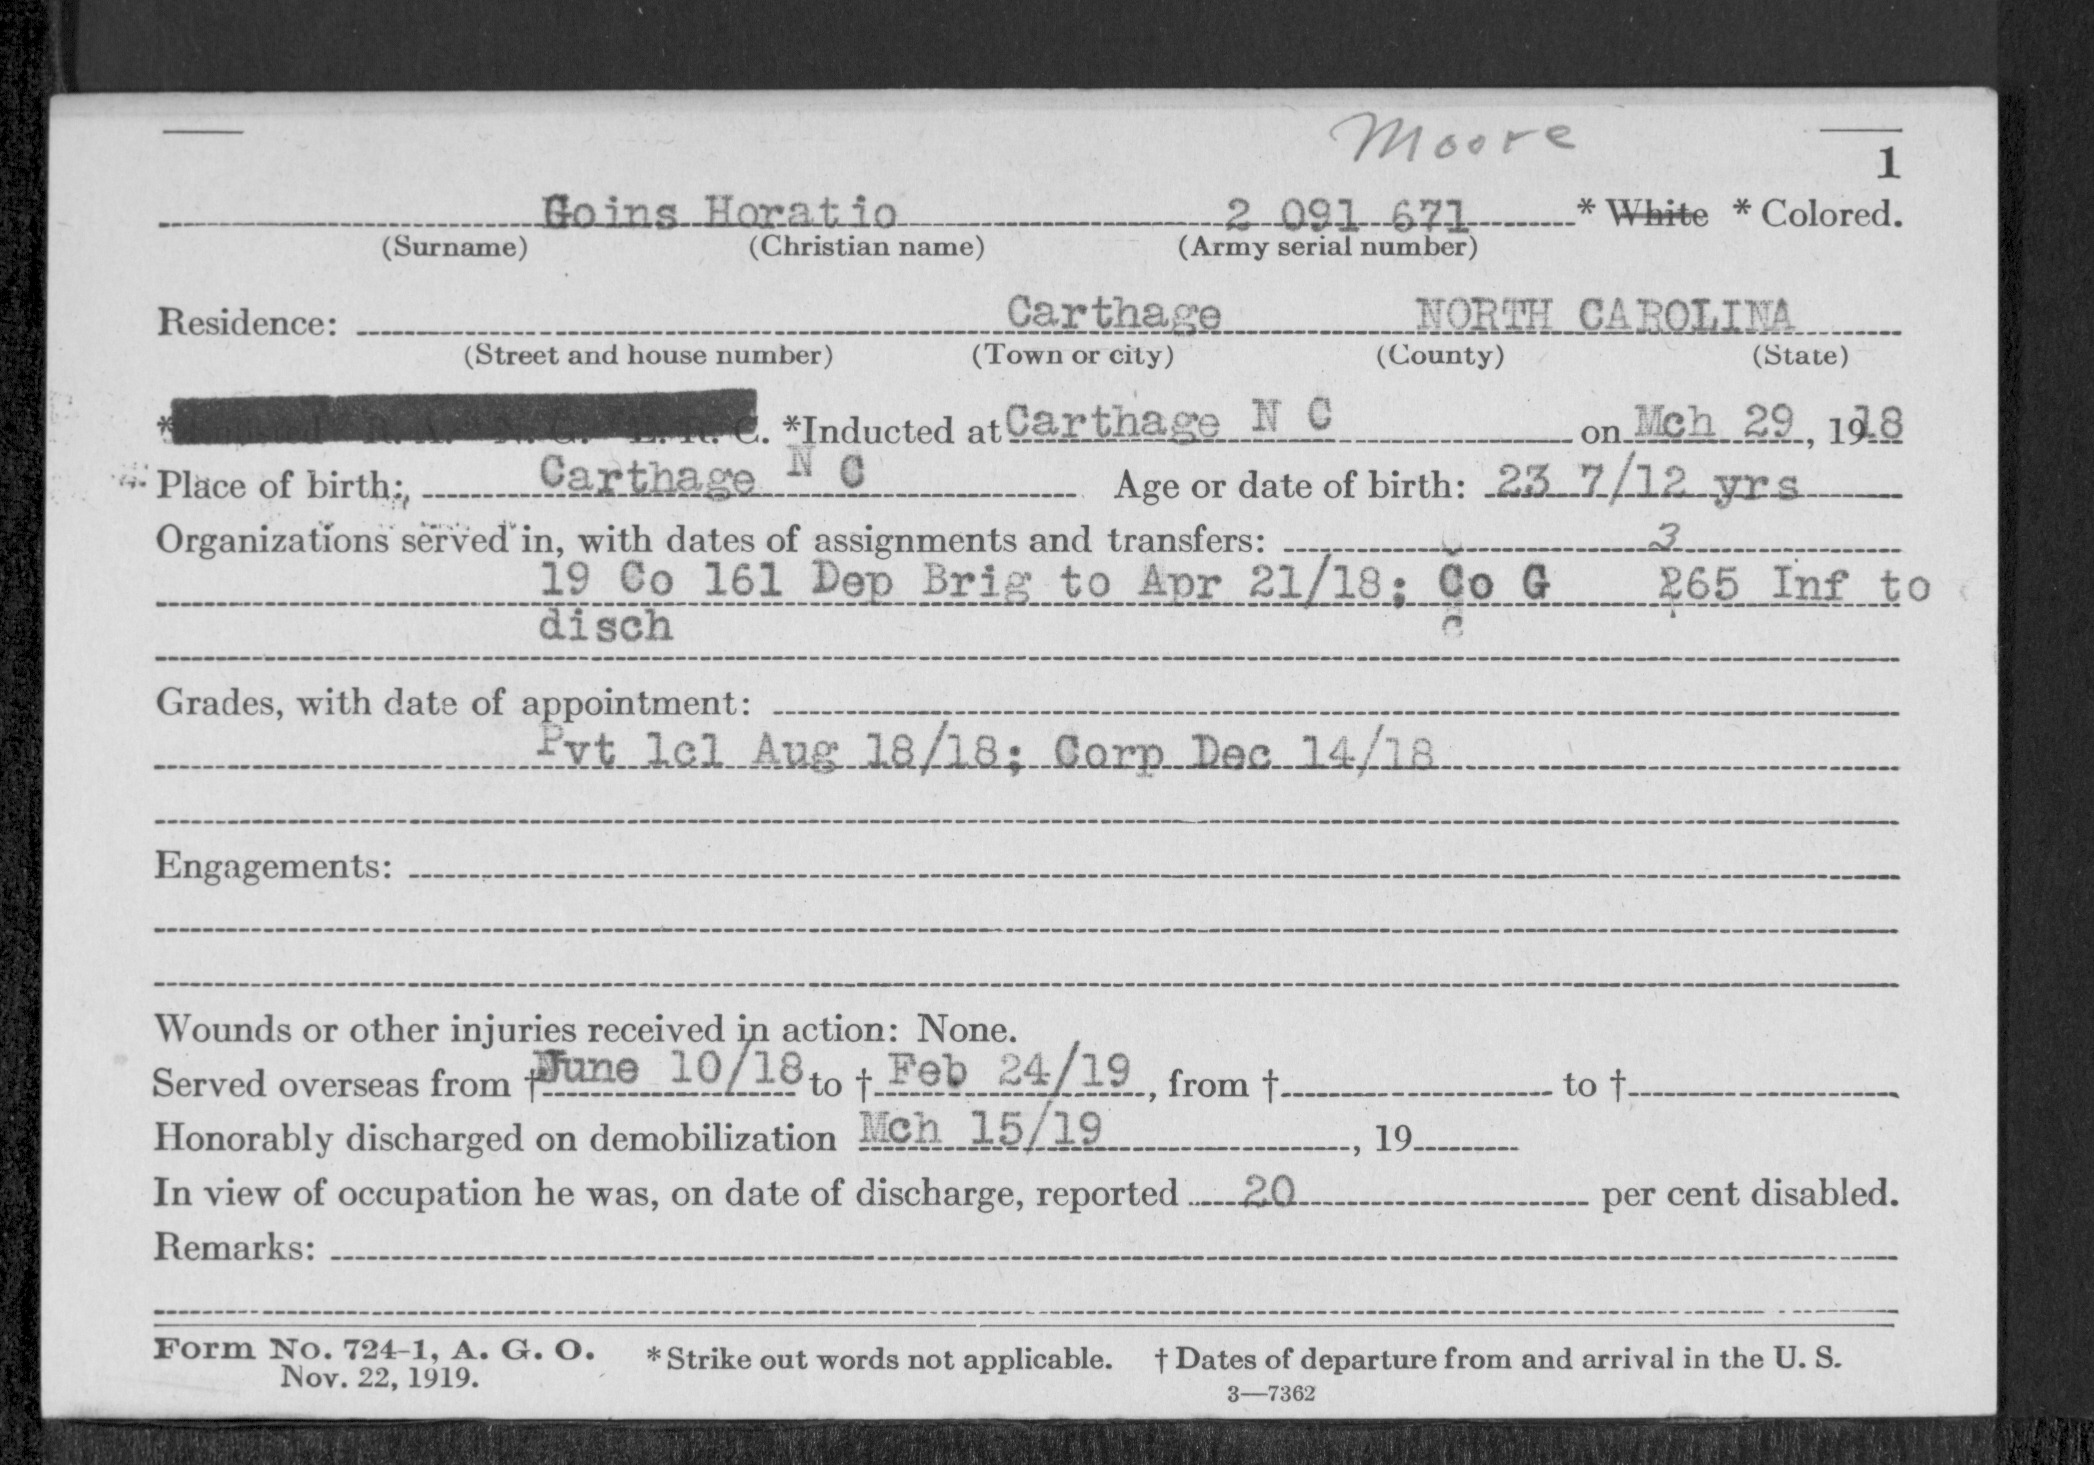 Moore
1
Goins Horatio 2 091 671 * White * Colored.
(Surname) (Christian name) (Army serial number)
Residence: Carthage NORTH CAROLINA
(Street and house number) (Town or city) (County) (State)
* R. A. N. G. E. R. C. *Inducted at Carthage N C on Mch 29, 1918
Place of birth: Carthage N C Age or date of birth: 23 7/12 yrs
Organizations served in, with dates of assignments and transfers: 3
19 Co 161 Dep Brig to Apr 21/18; Co G 265 Inf to
disch
Grades, with date of appointment:
Pvt 1cl Aug 18/18; Corp Dec 14/18
Engagements:
Wounds or other injuries received in action: None.
Served overseas from † June 10/18 to † Feb 24/19, from † to †
Honorably discharged on demobilization Mch 15/19, 19
In view of occupation he was, on date of discharge, reported 20 per cent disabled.
Remarks:
Form No. 724-1, A. G. O. * Strike out words not applicable. † Dates of departure from and arrival in the U. S.
Nov. 22, 1919.
3—7362